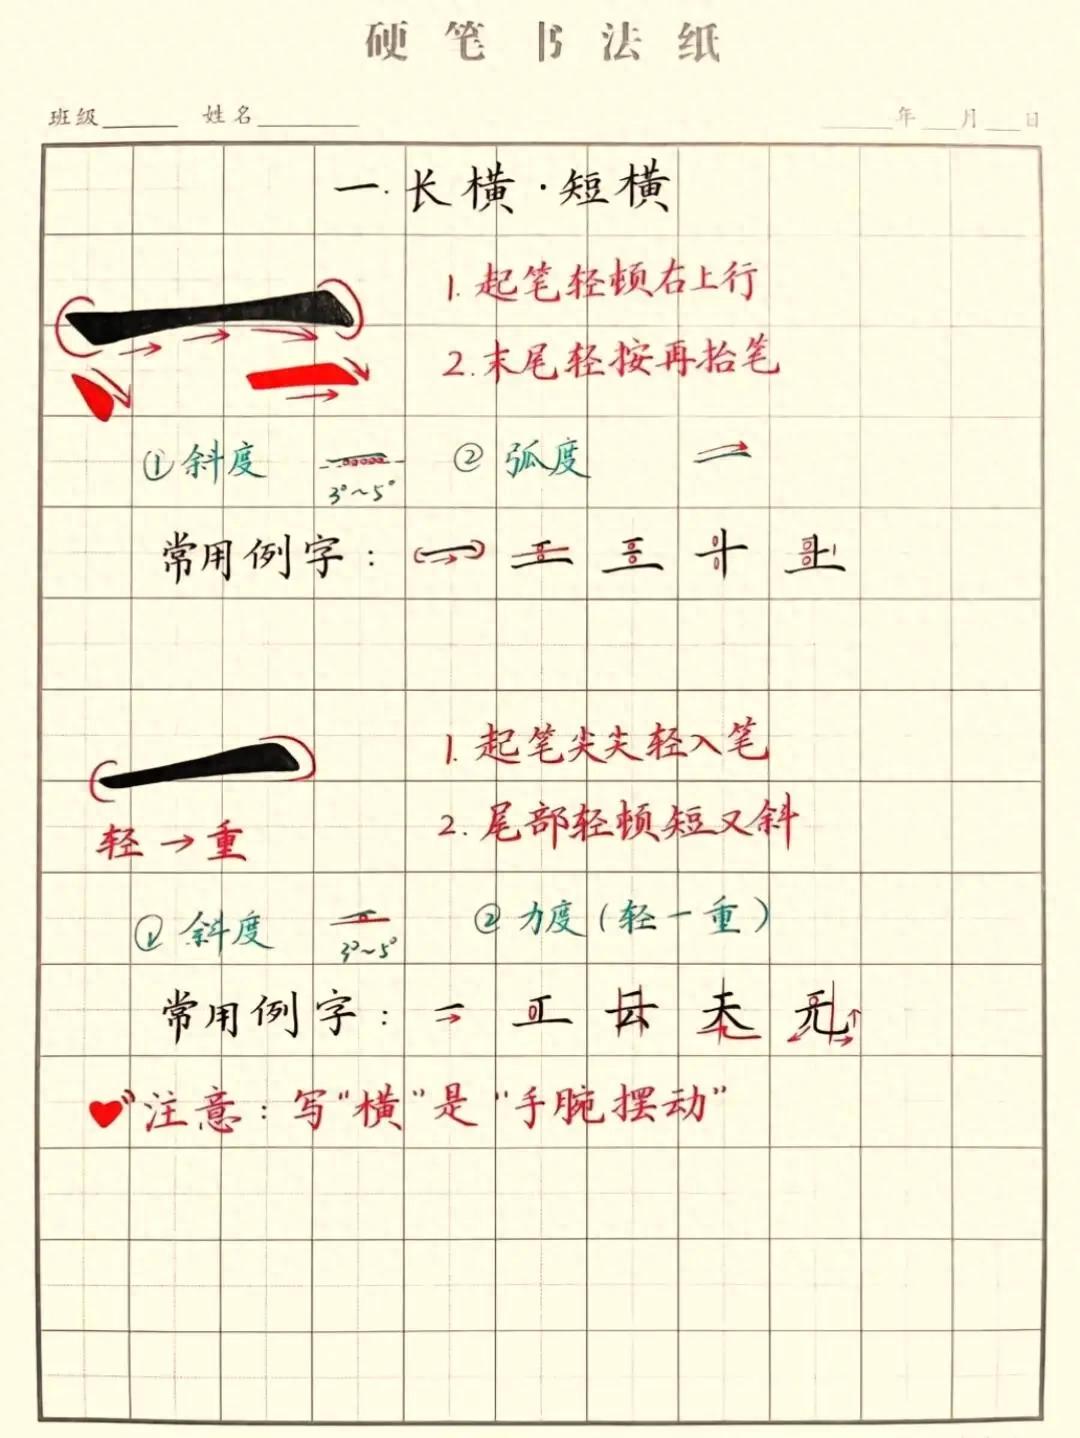 硬笔书法纸
班级 姓名 年 月 日
一.长横·短横
1.起笔轻顿右上行
2.末尾轻按再抬笔
①斜度 3°~5° ②弧度
常用例字：一 二 三 十 上
1.起笔尖尖轻入笔
2.尾部轻顿短又斜
轻→重
①斜度 3°~5° ②力度(轻—重)
常用例字：二 工 云 天 无
注意：写"横"是"手腕摆动"